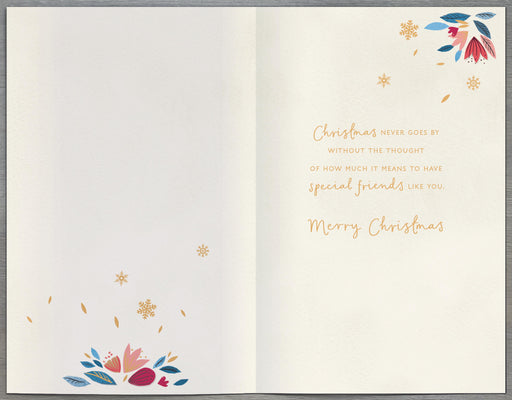 Christmas NEVER GOES BY
WITHOUT THE THOUGHT
OF HOW MUCH IT MEANS TO HAVE
special friends LIKE YOU.
Merry Christmas